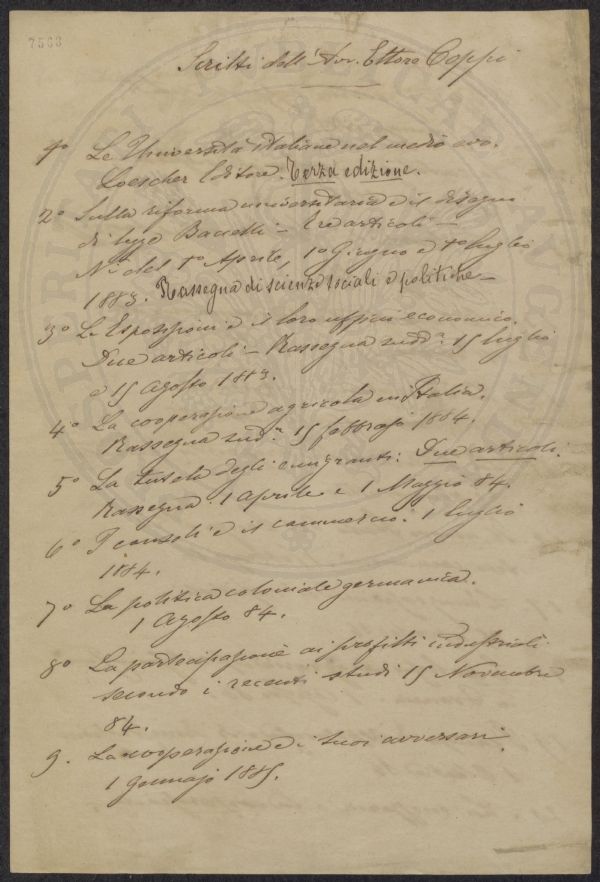 7563
Scritti dell'Avv. Ettore Coppi
1º Le Università italiane nel medio evo.
Loescher Editore. Terza edizione.
2º Sulla riforma universitaria e il disegno
di legge Baccelli – Tre articoli –
N.i del 1º Aprile, 1º Giugno e 1º luglio
1883. Rassegna di scienze sociali e politiche –
3º Le Esposizioni e il loro ufficio economico.
Due articoli – Rassegna sudd.a 15 luglio
e 15 agosto 1883.
4º La cooperazione agricola in Italia.
Rassegna sud.a 15 febbrajo 1884.
5º La tutela degli emigranti: Due articoli.
Rassegna: 1 aprile e 1 Maggio 84.
6º I consoli e il commercio: 1 luglio
1884.
7º La politica coloniale germanica.
1 agosto 84.
8º La partecipazione ai profitti industriali
secondo i recenti studi 15 Novembre
84.
9. La cooperazione e i suoi avversari
1 Gennajo 1885.